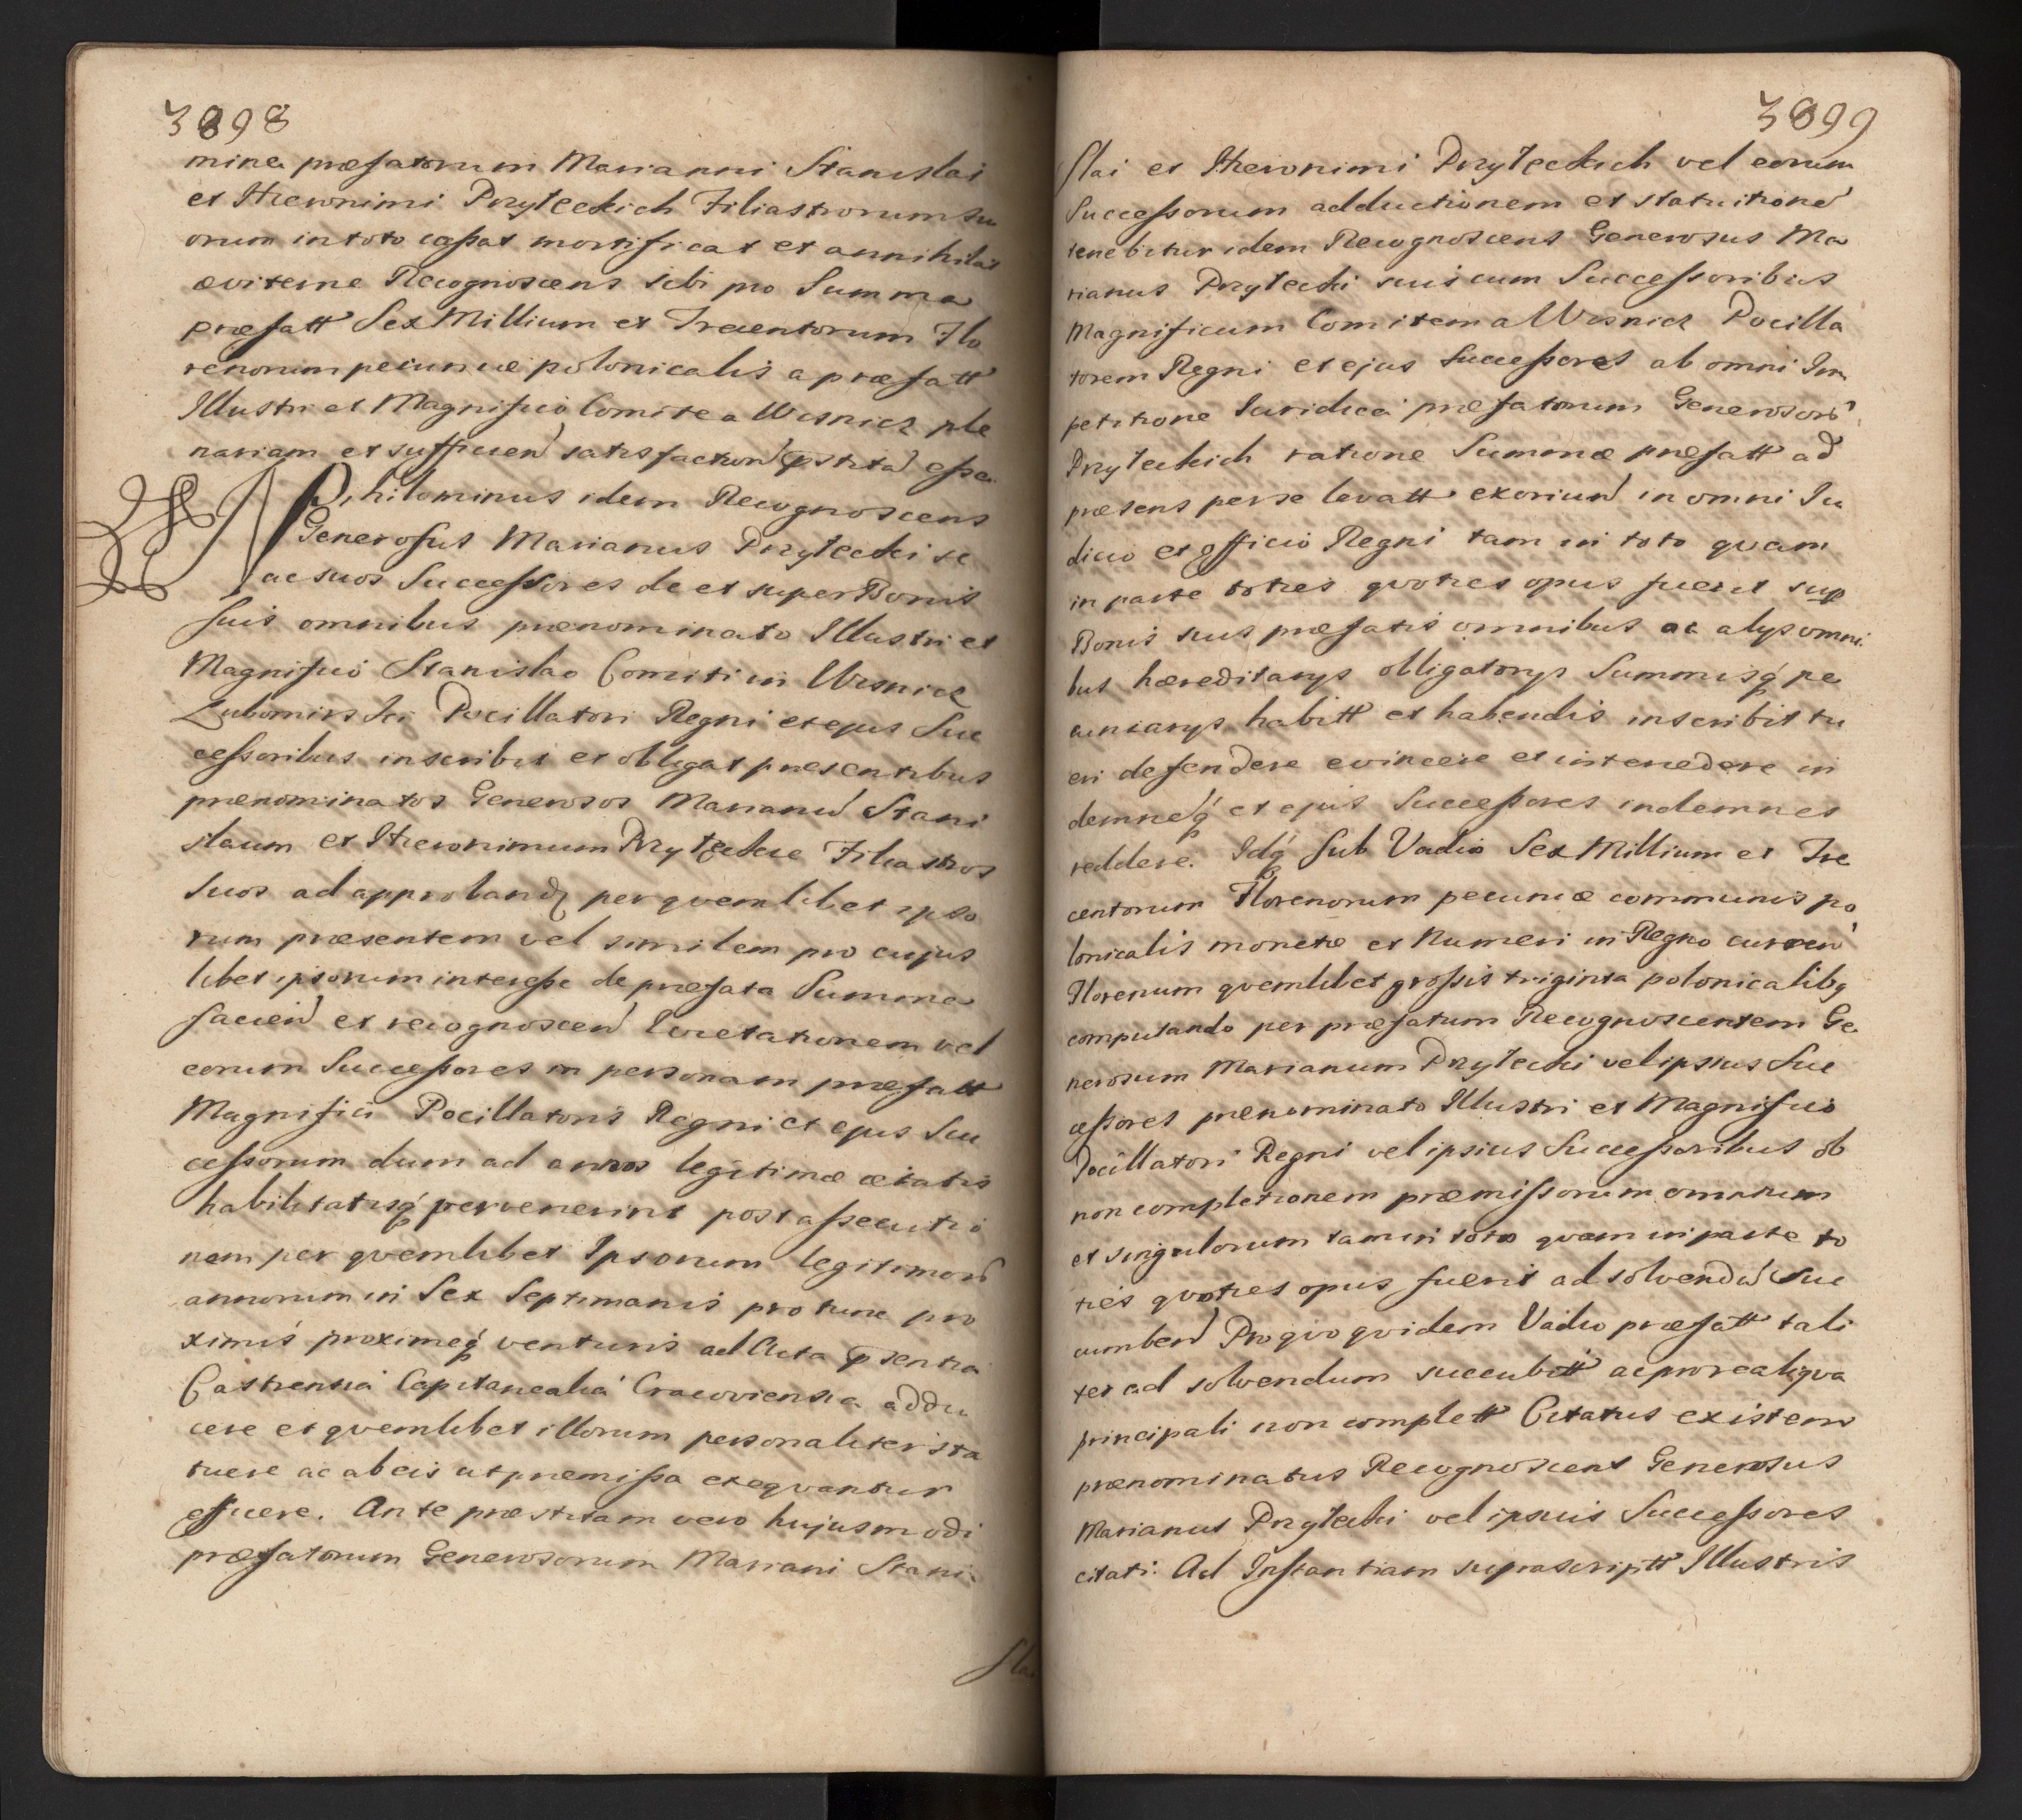 3898
mine præfatorum Marianni Stanislai
et Hieronimi Przyłeckich Filiastrorum su
orum in toto cassat mortificat et annihilat
æviterne Recognoscens sibi pro Summa
præfatt Sex Millium et Trecentorum Flo
renorum pecuniæ polonicalis a præfatt
Illustri et Magnifico Comite a Wisnicz ple
nariam et sufficien satisfaction pstita esse.
Nihilominus idem Recognoscens
Generosus Marianus Przyłecki se
ac suos Successores de et super Bonis
suis omnibus prænominato Illustri et
Magnifico Stanislao Comiti in Wisnicz
Lubomirski Pocillatori Regni et ejus Suc
cessoribus inscribit et obligat præsentibus
prænominatos Generosos Marianu Stani
slaum et Hieronimum Przyłeckie Filiastros
suos ad approband per qvemlibet ipso
rum præsentem vel similem pro cujus
libet ipsorum interesse de præfata Summa
facien et recognoscen Qvietationem vel
eorum Successores in personam præfatt
Magnifici Pocillatoris Regni et ejus Suc
cessorum dum ad annos legitimæ ætatis
habilitatisq pervenerint post assecutio
nem per qvemlibet Ipsorum legitimor
annorum in Sex Septimanis pro tunc pro
ximis proximeq venturis ad Acta psentia
Castrensia Capitanealia Cracoviensia addu
cere et qvemlibet illorum personaliter sta
tuere ac ab eis ut præmissa exeqvantur
efficere. Ante præstitam vero hujusmodi
præfatorum Generosorum Mariani Stani-
sla
3899
slai et Hieronimi Przyłeckich vel eorum
Successorum adductionem et statuitione
tenebitur idem Recognoscens Generosus Ma
rianus Przyłecki suis cum Successoribus
Magnificum Comitem a Wisnicz Pocilla
torem Regni et ejus Successores ab omni Im
petitione Juridica præfatorum Generosor
Przyłeckich ratione Summæ præfatt ad
præsens per se levatt exoriun in omni Ju
dicio et officio Regni tam in toto qvam
in parte toties qvoties opus fuerit sup
Bonis suis præfatis omnibus ac alys omni
bus hæreditarys obligatorys Summisq pe
cuniarys habitt et habendis inscribit tu
eri defendere evincere et intercedere in
demneq et ejus Successores indemnes
reddere. Idq sub Vadio Sex Millium et Tre
centorum Florenorum pecuniæ communis po
lonicalis monetæ et Numeri in Regno curren
Florenum qvemlibet grossis triginta polonicalibq
computando per præfatum Recognoscentem Ge
nerosum Marianum Przyłecki vel ipsius Suc
cessores prænominato Illustri et Magnifico
Pocillatori Regni vel ipsius Successoribus ob
non completionem præmissorum omnium
et singulorum tam in toto qvam in parte to
ties qvoties opus fuerit ad solvendu suc
cumben Pro qvo qvidem Vadio præfatt tali
ter ad solvendum succubitt ac pro re aliqva
principali non complett Citatus existens
prænominatus Recognoscens Generosus
Marianus Przyłecki vel ipsius Successores
citati. Ad Instantiam suprascriptt Illustris